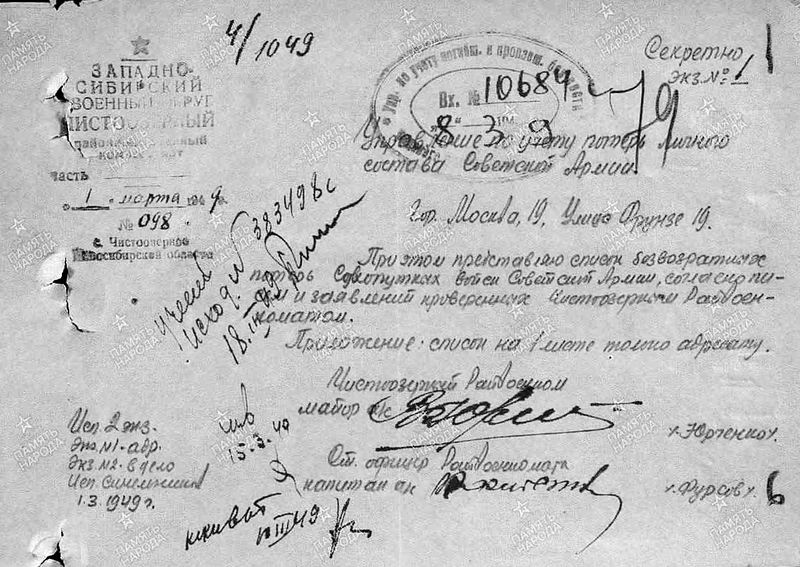 4/1049
Секретно
Экз. № 1
1
ЗАПАДНО-
СИБИРСКИЙ
ВОЕННЫЙ ОКРУГ
ЧИСТООЗЕРНЫЙ
районный военный
комиссариат
Часть
„ 1 " марта 1949 г.
№ 098
с. Чистоозерное
Новосибирской области
Упр. по учету погибш. и пропавш. без вести
Вх. № 10684
„8" 3 194 9
Управление по учету потерь личного
состава Советской Армии
Гор. Москва, 19, Улица Фрунзе 19.
При этом представляю список безвозвратных
потерь Сухопутных войск Советской Армии, согласно пи-
сем и заявлений проверенных Чистоозерным Райвоен-
коматом.
Приложение: список на 1 листе только адресату.
учтено
Исход. № 383498с
18.III-49
Чистоозерный Райвоенком
майор а/с
/Юрченко/.
Ст. офицер Райвоенкомата
капитан а/с
/Фурсов/.
6
Исп. 2 экз.
Экз. №1-адр.
Экз. №2-в дело
Исп.
1.3.1949 г.
15-3-49
III 49
ПАМЯТЬ
НАРОДА